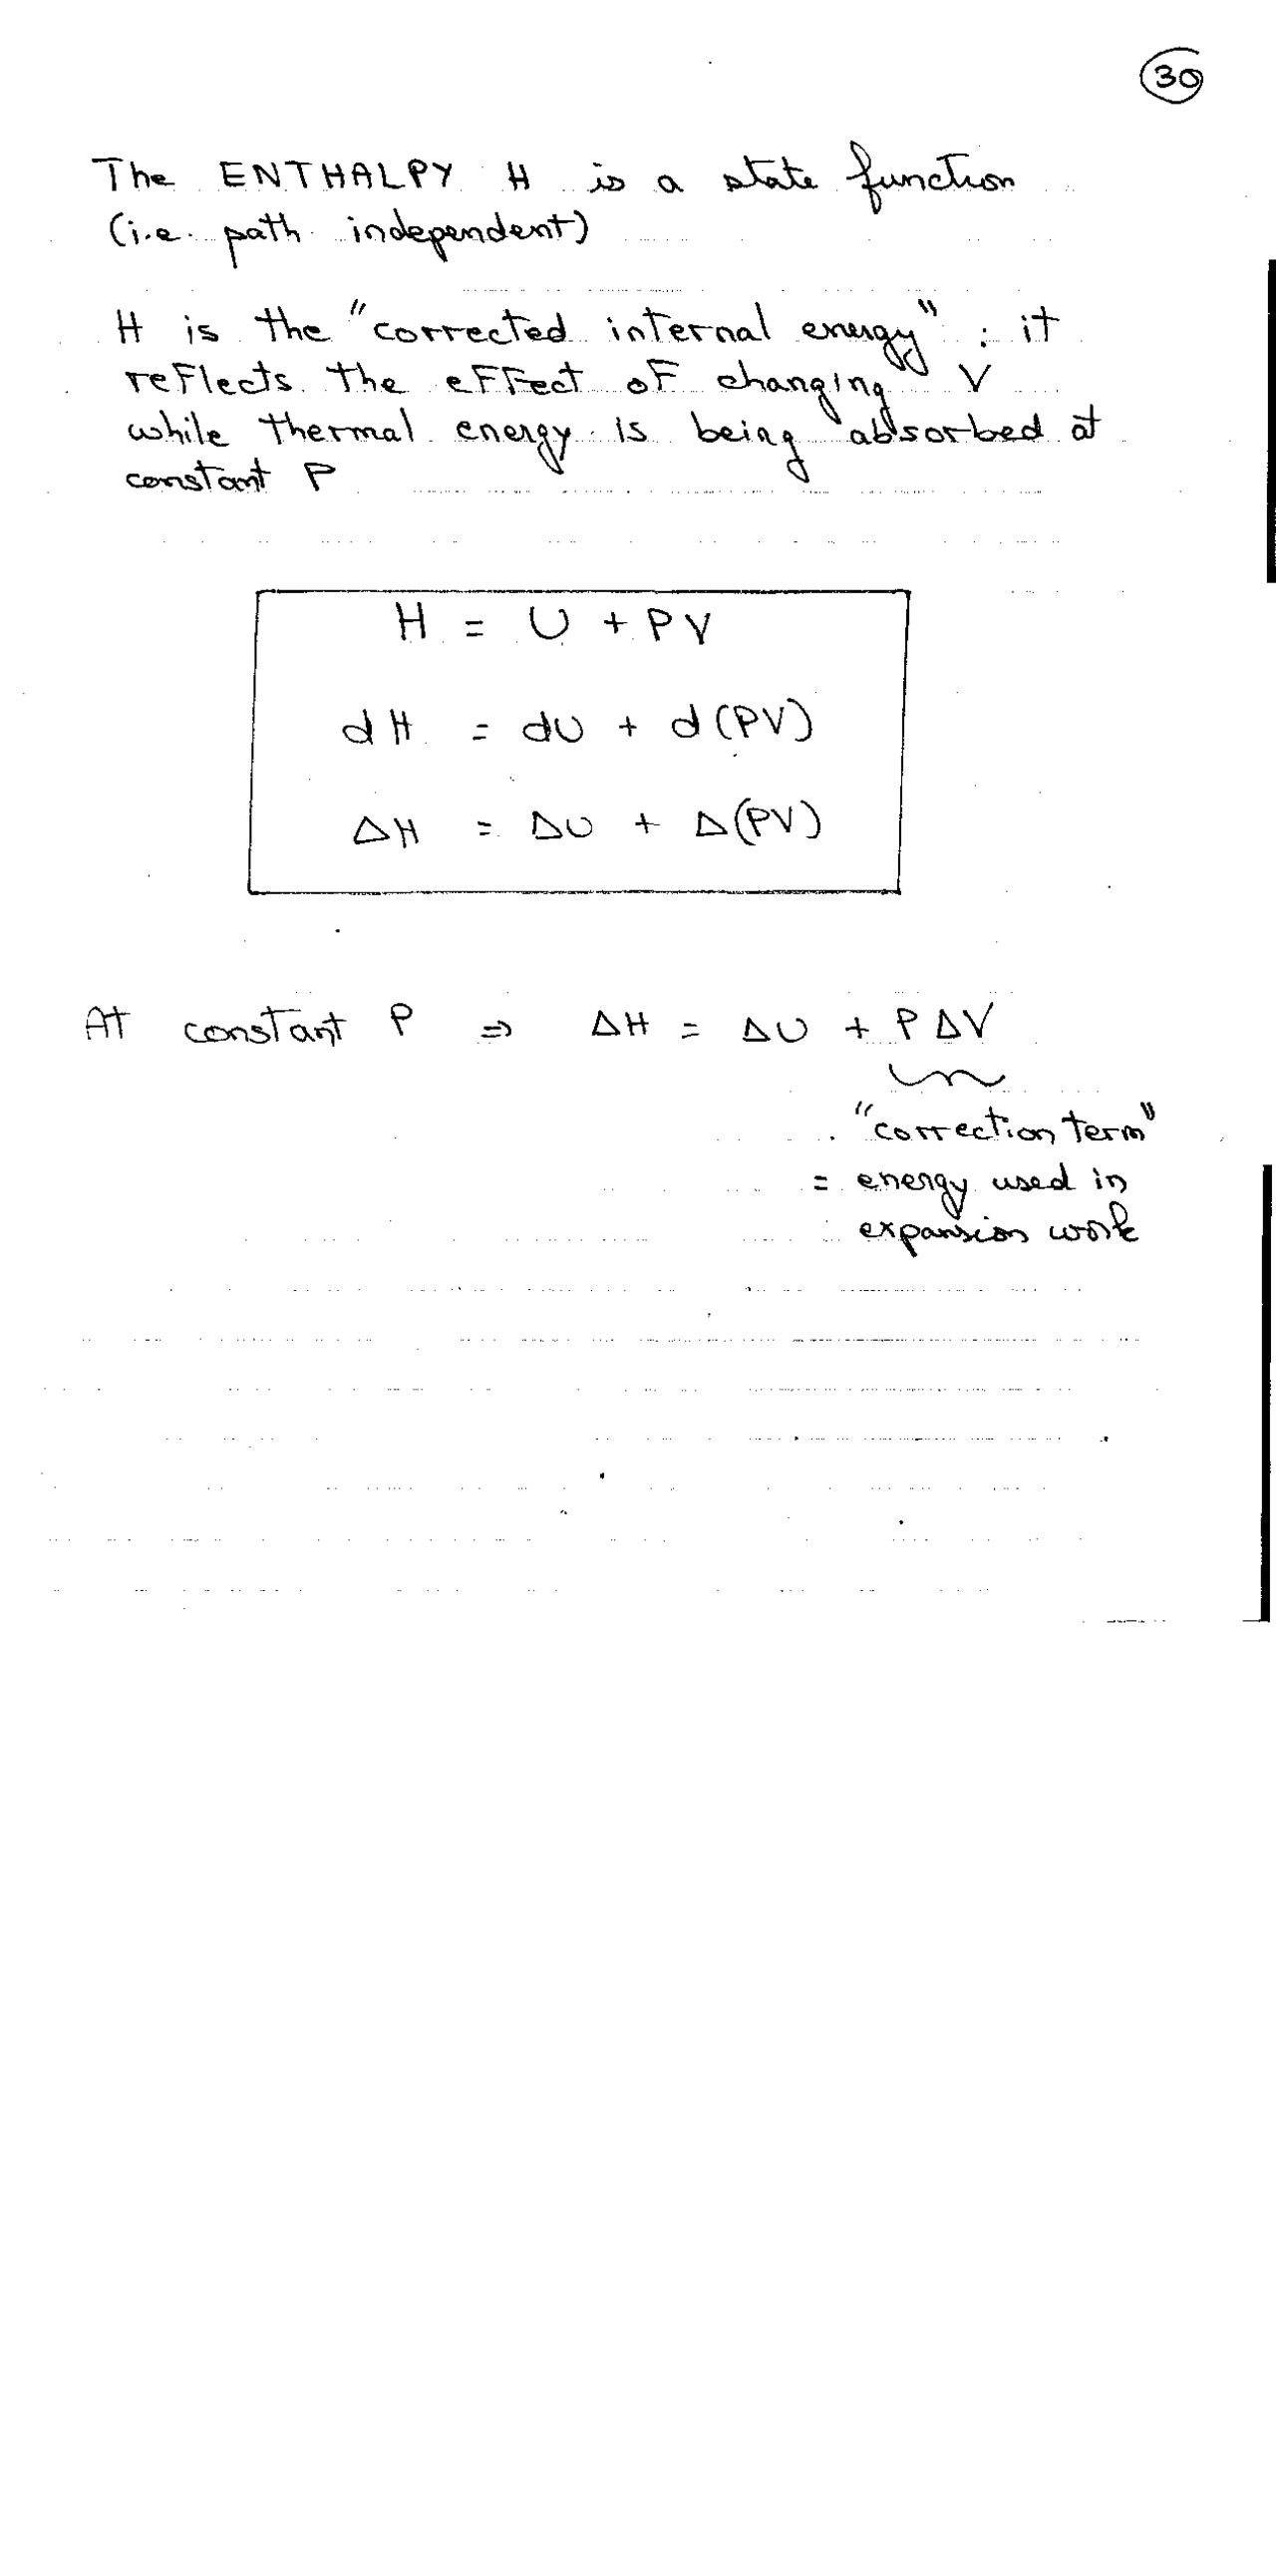 30
The ENTHALPY H is a state function
(i.e. path independent)
H is the "corrected internal energy" : it
reflects the effect of changing V
while thermal energy is being absorbed at
constant P
H = U + PV
dH = dU + d(PV)
ΔH = ΔU + Δ(PV)
At constant P ⇒ ΔH = ΔU + PΔV
"correction term"
= energy used in
expansion work